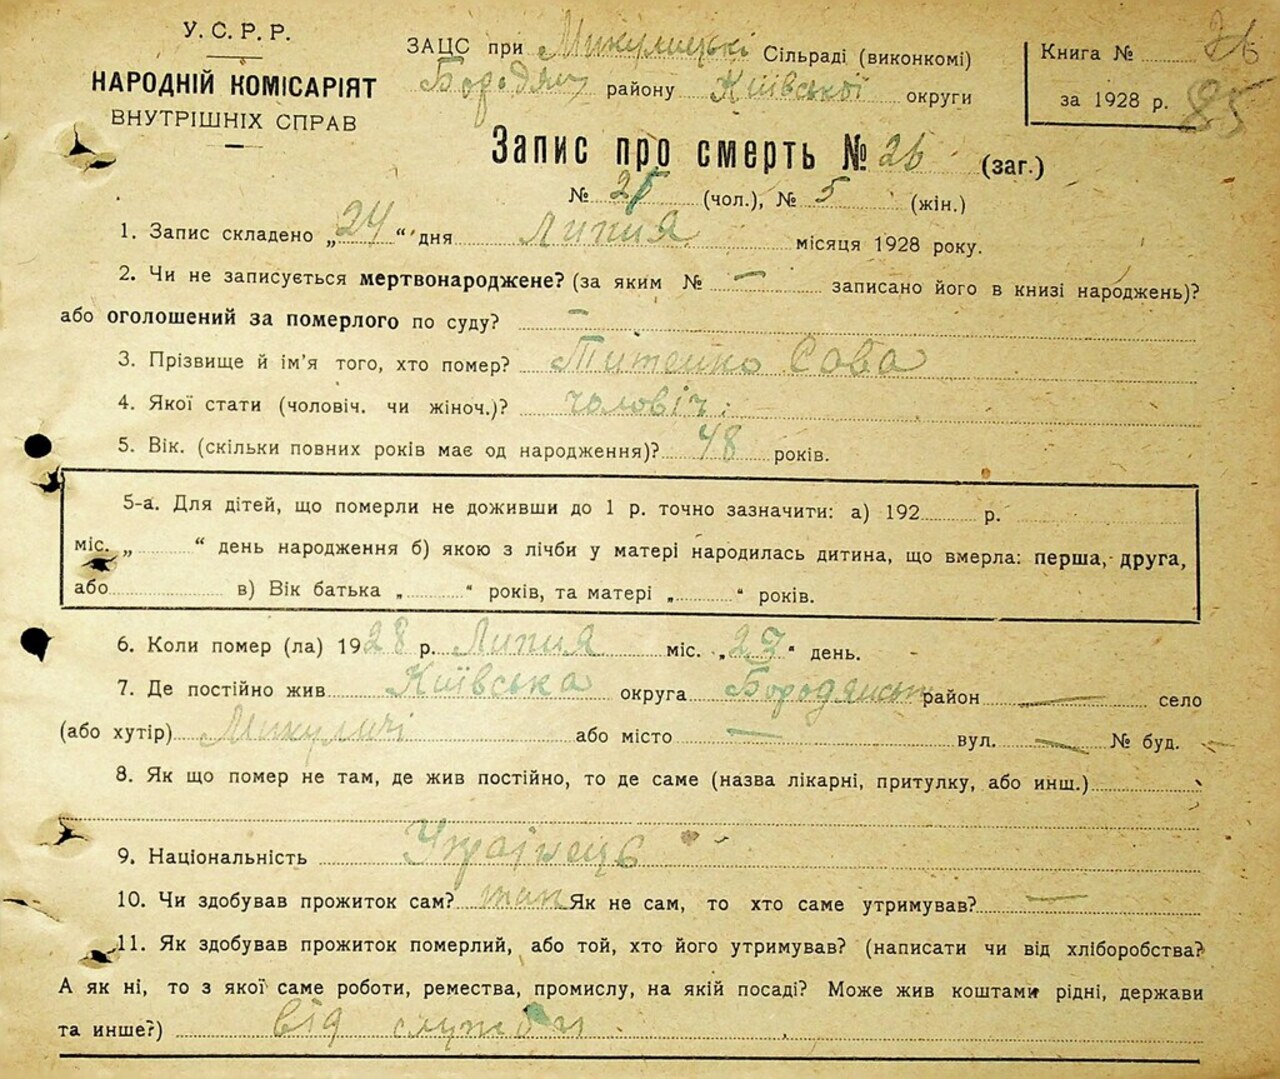 У. С. Р. Р.
НАРОДНІЙ КОМІСАРІЯТ
ВНУТРІШНІХ СПРАВ
ЗАЦС при Микулицькі Сільраді (виконкомі)
Бородян району Київської округи
Книга № 26
за 1928 р. 85
Запис про смерть № 26 (заг.)
№ 21 (чол.), № 5 (жін.)
1. Запис складено „24“ дня Липня місяця 1928 року.
2. Чи не записується мертвонароджене? (за яким № — записано його в книзі народжень)?
або оголошений за померлого по суду? —
3. Прізвище й ім'я того, хто помер? Титенко Сава
4. Якої стати (чоловіч. чи жіноч.)? чоловіч:
5. Вік. (скільки повних років має од народження)? 48 років.
5-а. Для дітей, що померли не доживши до 1 р. точно зазначити: а) 192 р.
міс. „ “ день народження б) якою з лічби у матері народилась дитина, що вмерла: перша, друга,
або в) Вік батька „ “ років, та матері „ “ років.
6. Коли помер (ла) 1928 р. Липня міс. „23“ день.
7. Де постійно жив Київська округа Бородянськ район — село
(або хутір) Микуличі або місто — вул. — № буд. —
8. Як що помер не там, де жив постійно, то де саме (назва лікарні, притулку, або инш.)
9. Національність Українець
10. Чи здобував прожиток сам? так Як не сам, то хто саме утримував? —
11. Як здобував прожиток померлий, або той, хто його утримував? (написати чи від хліборобства?
А як ні, то з якої саме роботи, ремества, промислу, на якій посаді? Може жив коштами рідні, держави
та инше?) від служби